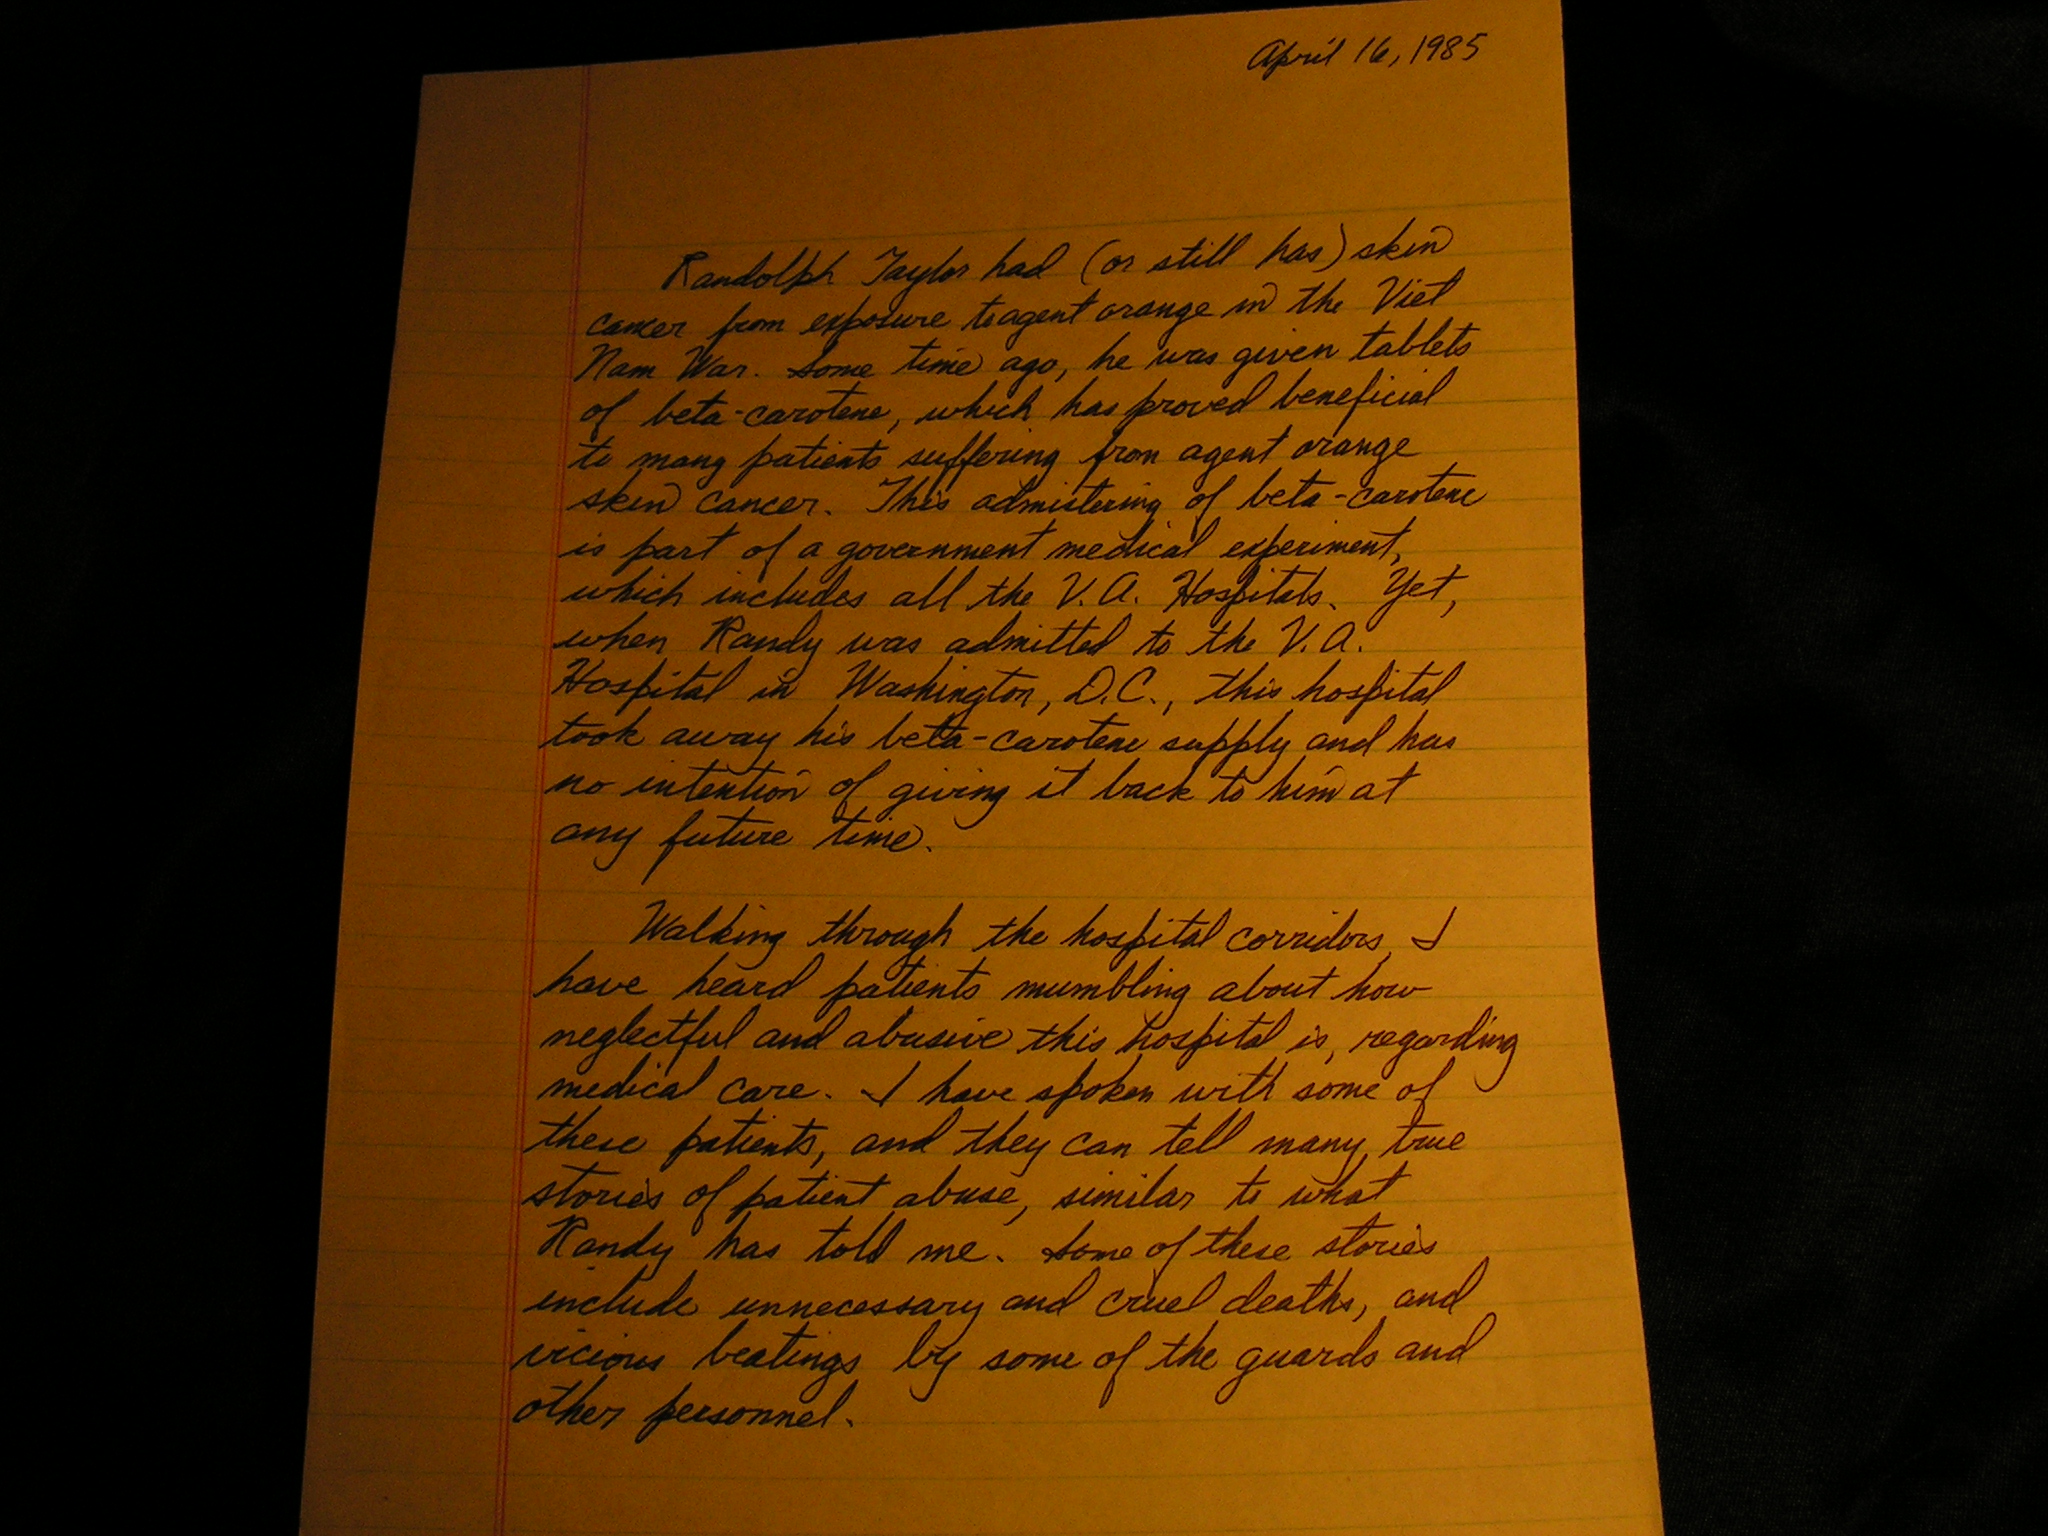 April 16, 1985
Randolph Taylor had (or still has) skin
cancer from exposure to agent orange in the Viet
Nam War. Some time ago, he was given tablets
of beta-carotene, which has proved beneficial
to many patients suffering from agent orange
skin cancer. This admistering of beta-carotene
is part of a government medical experiment,
which includes all the V.A. Hospitals. Yet,
when Randy was admitted to the V.A.
Hospital in Washington, D.C., this hospital
took away his beta-carotene supply and has
no intention of giving it back to him at
any future time.
Walking through the hospital corridors, I
have heard patients mumbling about how
neglectful and abusive this hospital is, regarding
medical care. I have spoken with some of
these patients, and they can tell many, true
stories of patient abuse, similar to what
Randy has told me. Some of these stories
include unnecessary and cruel deaths, and
vicious beatings by some of the guards and
other personnel.